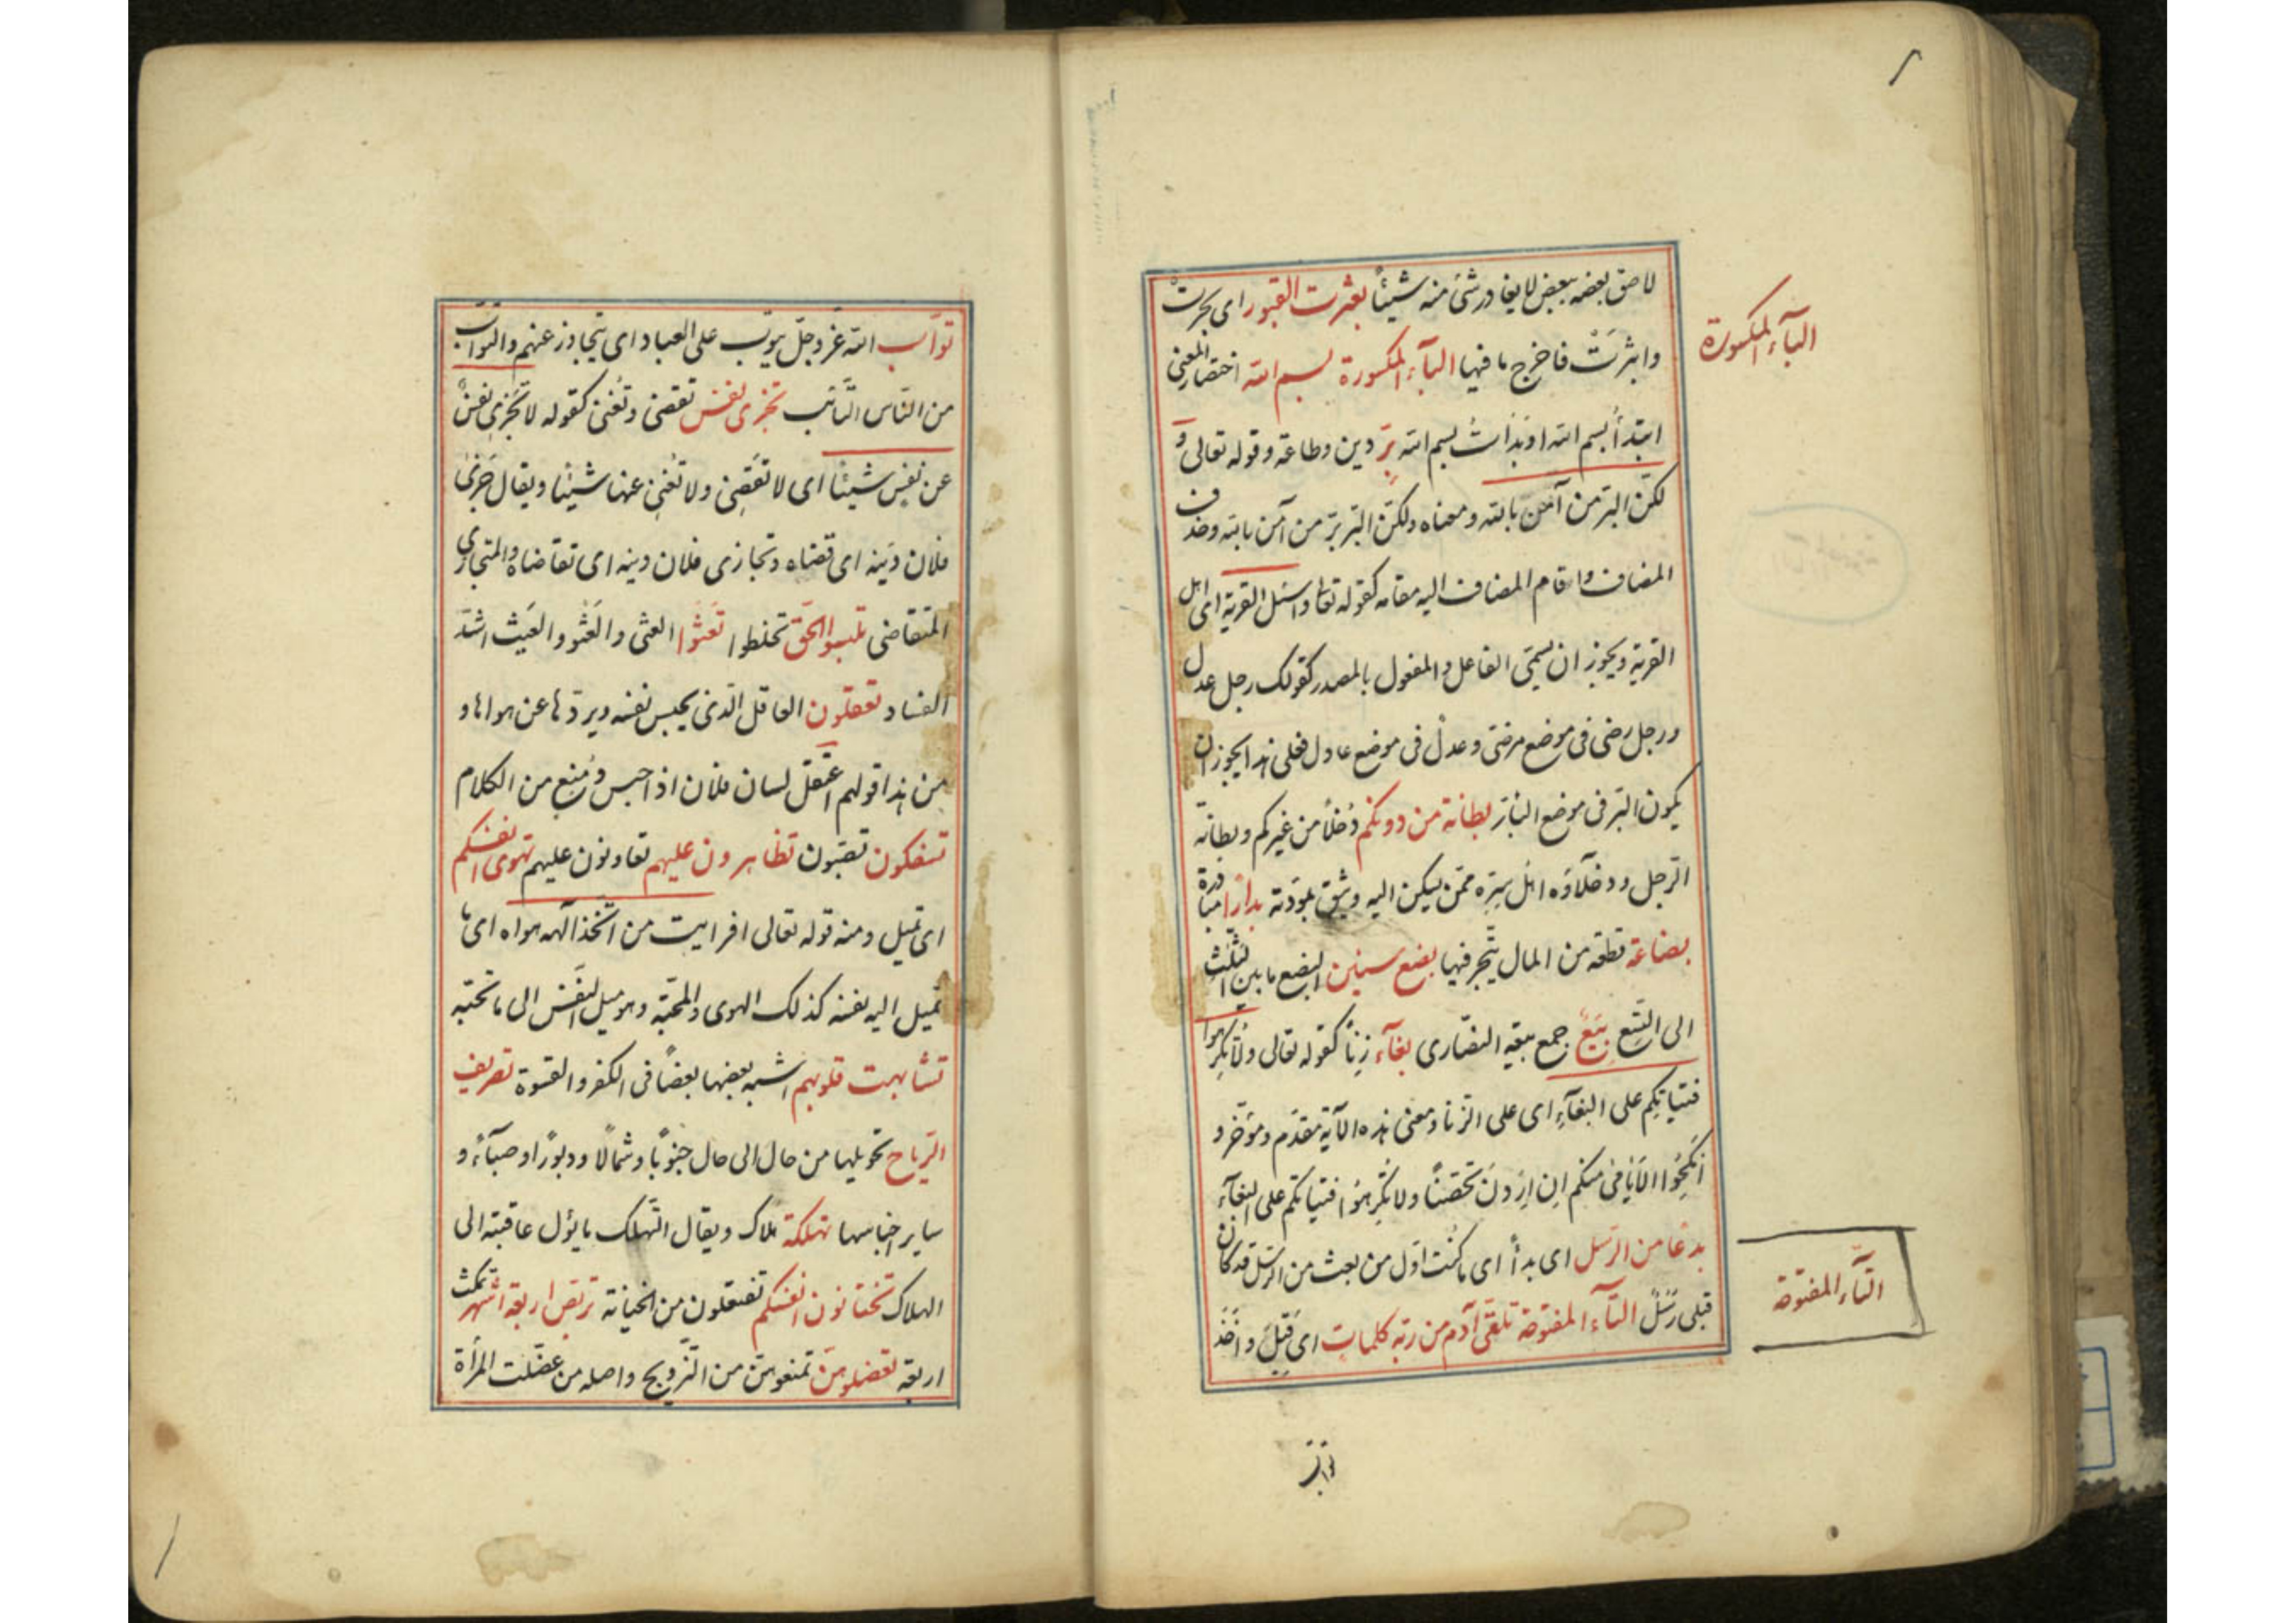 لاصق بعضه ببعض لا يغادر شئ منه شيئًا بعثرت القبور اى بحثرت
وابثرت فاخرج ما فيها البآء المكسورة بسم الله اختصار المعنى
البآء المكسورة
ابتدأ بسم الله او بدأت بسم الله برّ دين وطاعة وقوله تعالى و
لكن البرّ من آمن بالله ومعناه ولكن البرّ برّ من آمن بالله وحذف
المضاف واقام المضاف اليه مقامه كقوله تعالى واسئل القرية اى اهل
القرية ويجوز ان يسمّى الفاعل والمفعول بالمصدر كقولك رجل عدل
ورجل رضى فى موضع مرضىّ وعدل فى موضع عادل فعلى هذا يجوز ان
يكون البرّ فى موضع البارّ بطانة من دونكم دخلاً من غيركم وبطانة
الرّجل ودخلآؤه اهل سرّه ممّن يسكن اليه ويثق بمودّته بدارًا مبادرة
بضاعة قطعة من المال يتّجر فيها بضع سنين البضع ما بين الثلث
الى التسع بيع جمع بيعة النصارى بغآء زناً كقوله تعالى ولا تكرهوا
فتياتكم على البغآء اى على الزنا ومعنى هذه الآية مقدّم ومؤخّر و
انكحوا الايامى منكم ان اردن تحصّنًا ولا تكرهوا فتياتكم على البغآء
بدعًا من الرّسل اى بدأ اى ما كنت اوّل من بعث من الرسل قد كان
قبلى رسل التّآء المفتوحة تلقّى آدم من ربّه كلمات اى قبل واخذ
التّآء المفتوحة
توّاب
توّاب الله عزّ وجلّ يتوب على العباد اى يتجاوز عنهم والتوّاب
من النّاس التّائب تجزى نفس تقضى وتغنى كقوله لا تجزى نفس
عن نفس شيئًا اى لا تقضى ولا تغنى عنها شيئًا ويقال جزى
فلان دينه اى قضاه وتجازى فلان دينه اى تقاضاه والمتجازى
المتقاضى تلبسوا الحقّ تخلطوا تعثوا العثى والعثو والعيث اشدّ
الفساد تعقلون العاقل الّذى يحبس نفسه ويردّها عن هواها و
من هذا قولهم اعتقل لسان فلان اذا حبس ومنع من الكلام
تسفكون تصبّون تظاهرون عليهم تعاونون عليهم تهوى انفسكم
اى تميل ومنه قوله تعالى افرايت من اتّخذ الهه هواه اى ما
تميل اليه نفسه كذلك الهوى والمحبّة وهو ميل النّفس الى ما تحبّه
تشابهت قلوبهم اشبه بعضها بعضًا فى الكفر والقسوة تصريف
الرّياح تحويلها من حال الى حال جنوبًا وشمالًا ودبورًا وصبآءً و
ساير اجناسها تهلكة هلاك ويقال التّهلك ما يؤل عاقبته الى
الهلاك تختانون انفسكم تفتعلون من الخيانة تربّص اربعة اشهر تمكث
اربعة تعضلوهنّ تمنعوهنّ من التّزويج واصله من عضّلت المرأة